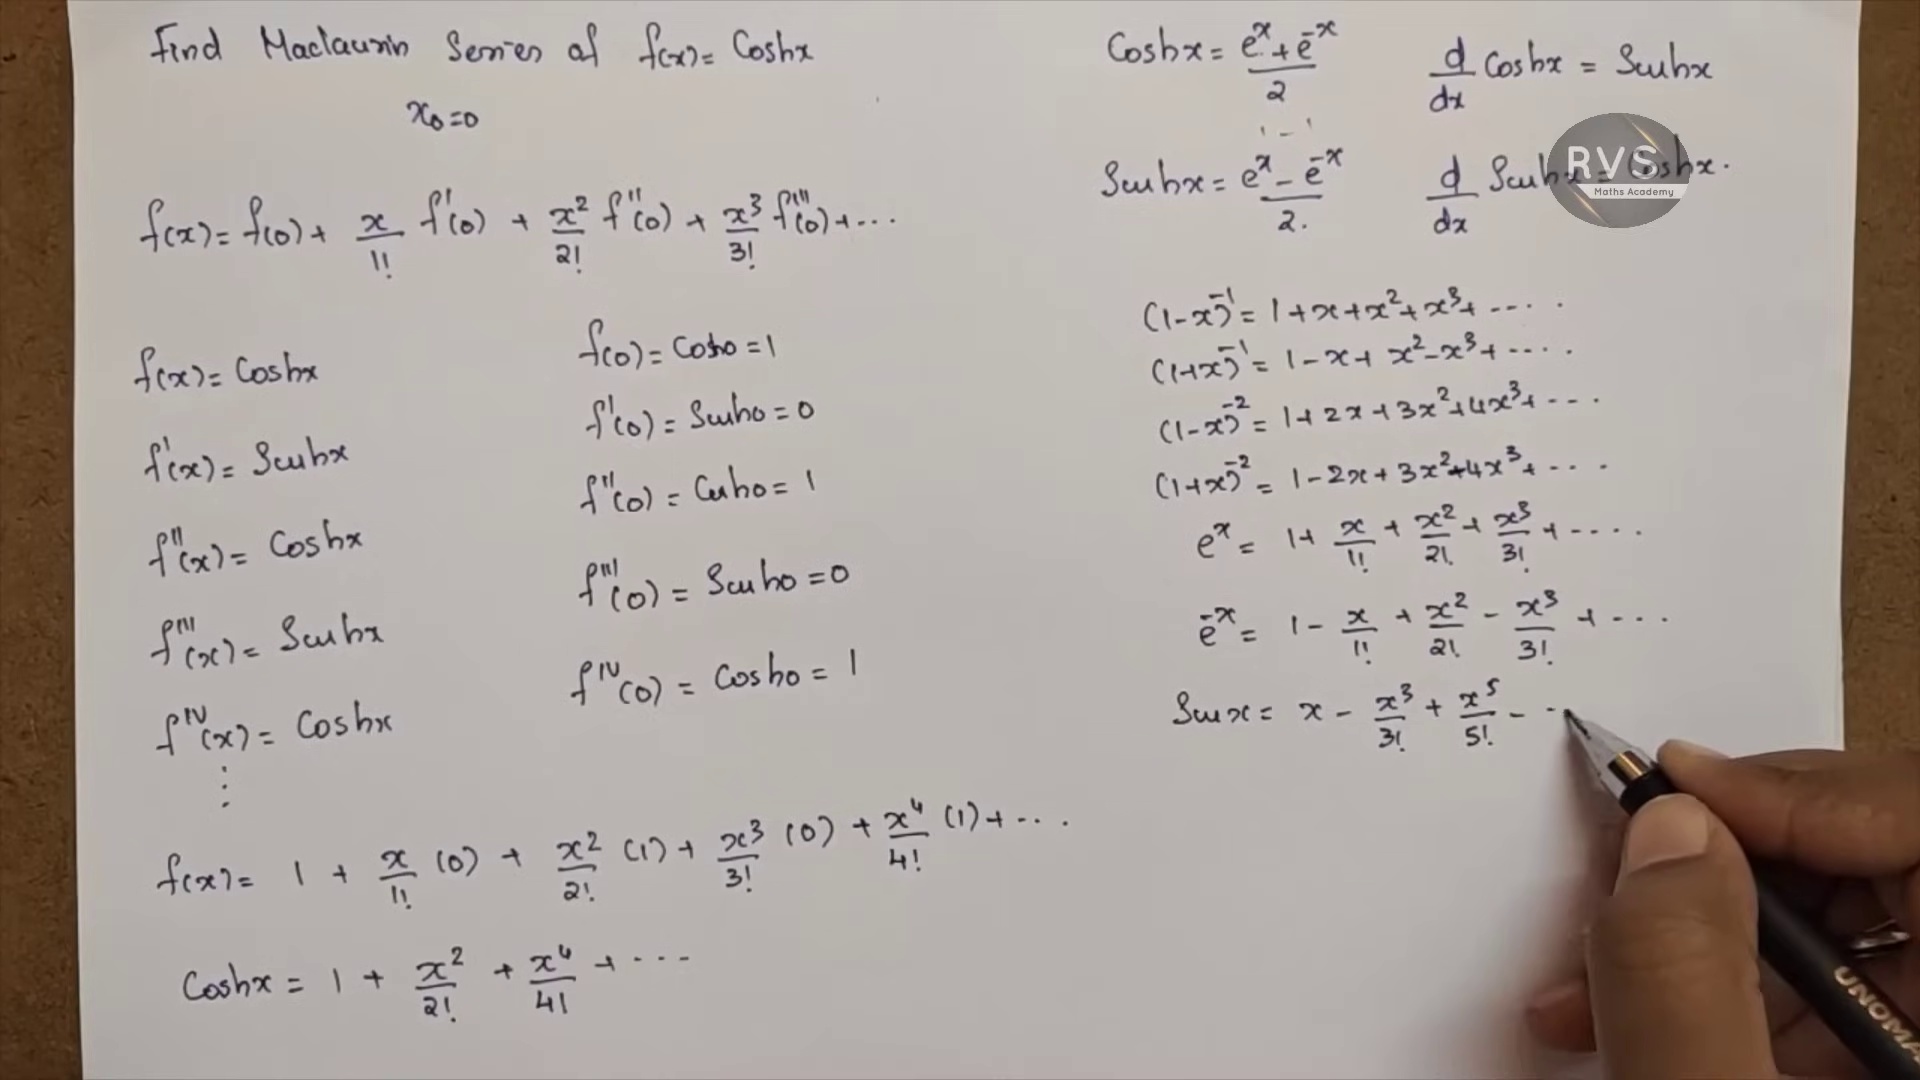 Find Maclaurin Series of f(x) = Coshx
x₀=0
f(x) = f(0) + x/1! f'(0) + x²/2! f''(0) + x³/3! f'''(0) + ...
f(x) = Coshx
f'(x) = Sinhx
f''(x) = Coshx
f'''(x) = Sinhx
f^IV(x) = Coshx
⋮
f(0) = Cosh0 = 1
f'(0) = Sinh0 = 0
f''(0) = Cosh0 = 1
f'''(0) = Sinh0 = 0
f^IV(0) = Cosh0 = 1
f(x) = 1 + x/1! (0) + x²/2! (1) + x³/3! (0) + x⁴/4! (1) + ...
Coshx = 1 + x²/2! + x⁴/4! + ...
Coshx = (e^x + e^-x)/2
d/dx Coshx = Sinhx
Sinhx = (e^x - e^-x)/2.
d/dx Sinhx = Coshx.
RVS
Maths Academy
(1-x)^-1 = 1+x+x²+x³+ ....
(1+x)^-1 = 1-x+x²-x³+ ....
(1-x)^-2 = 1+2x+3x²+4x³+ ...
(1+x)^-2 = 1-2x+3x²-4x³+ ...
e^x = 1 + x/1! + x²/2! + x³/3! + ....
e^-x = 1 - x/1! + x²/2! - x³/3! + ...
Sin x = x - x³/3! + x⁵/5! - ..
UNOMA